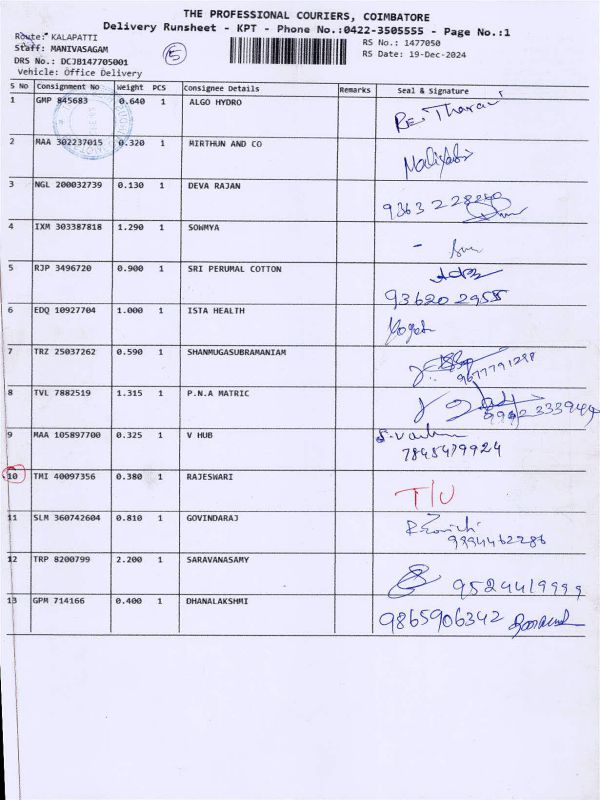 THE PROFESSIONAL COURIERS, COIMBATORE
Delivery Runsheet - KPT - Phone No.:0422-3505555 - Page No.:1
Route: KALAPATTI
Staff: MANIVASAGAM
DRS No.: DCJB147705001
Vehicle: Office Delivery
5
RS No.: 1477050
RS Date: 19-Dec-2024
S No Consignment No Weight PCS Consignee Details Remarks Seal & Signature
1 GMP 845683 0.640 1 ALGO HYDRO
2 MAA 302237015 0.320 1 MIRTHUN AND CO
3 NGL 200032739 0.130 1 DEVA RAJAN
4 IXM 303387818 1.290 1 SOWMYA
5 RJP 3496720 0.900 1 SRI PERUMAL COTTON
936202 2955
6 EDQ 10927704 1.000 1 ISTA HEALTH
7 TRZ 25037262 0.590 1 SHANMUGASUBRAMANIAM
9677791298
8 TVL 7882519 1.315 1 P.N.A MATRIC
9 MAA 105897700 0.325 1 V HUB
7845479924
10 TMI 40097356 0.380 1 RAJESWARI T/U
11 SLM 360742604 0.810 1 GOVINDARAJ
9894462286
12 TRP 8200799 2.200 1 SARAVANASAMY 9524419999
13 GPM 714166 0.400 1 DHANALAKSHMI 9865906342